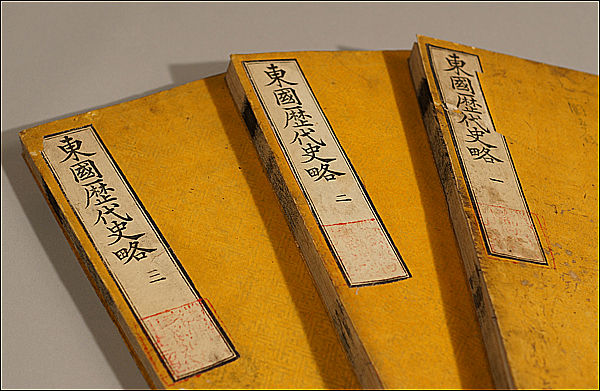 東國歷代史略 一
東國歷代史略 二
東國歷代史略 三